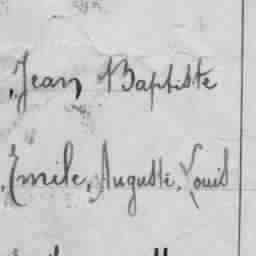 Jean Baptiste
Emile, Auguste, Louis